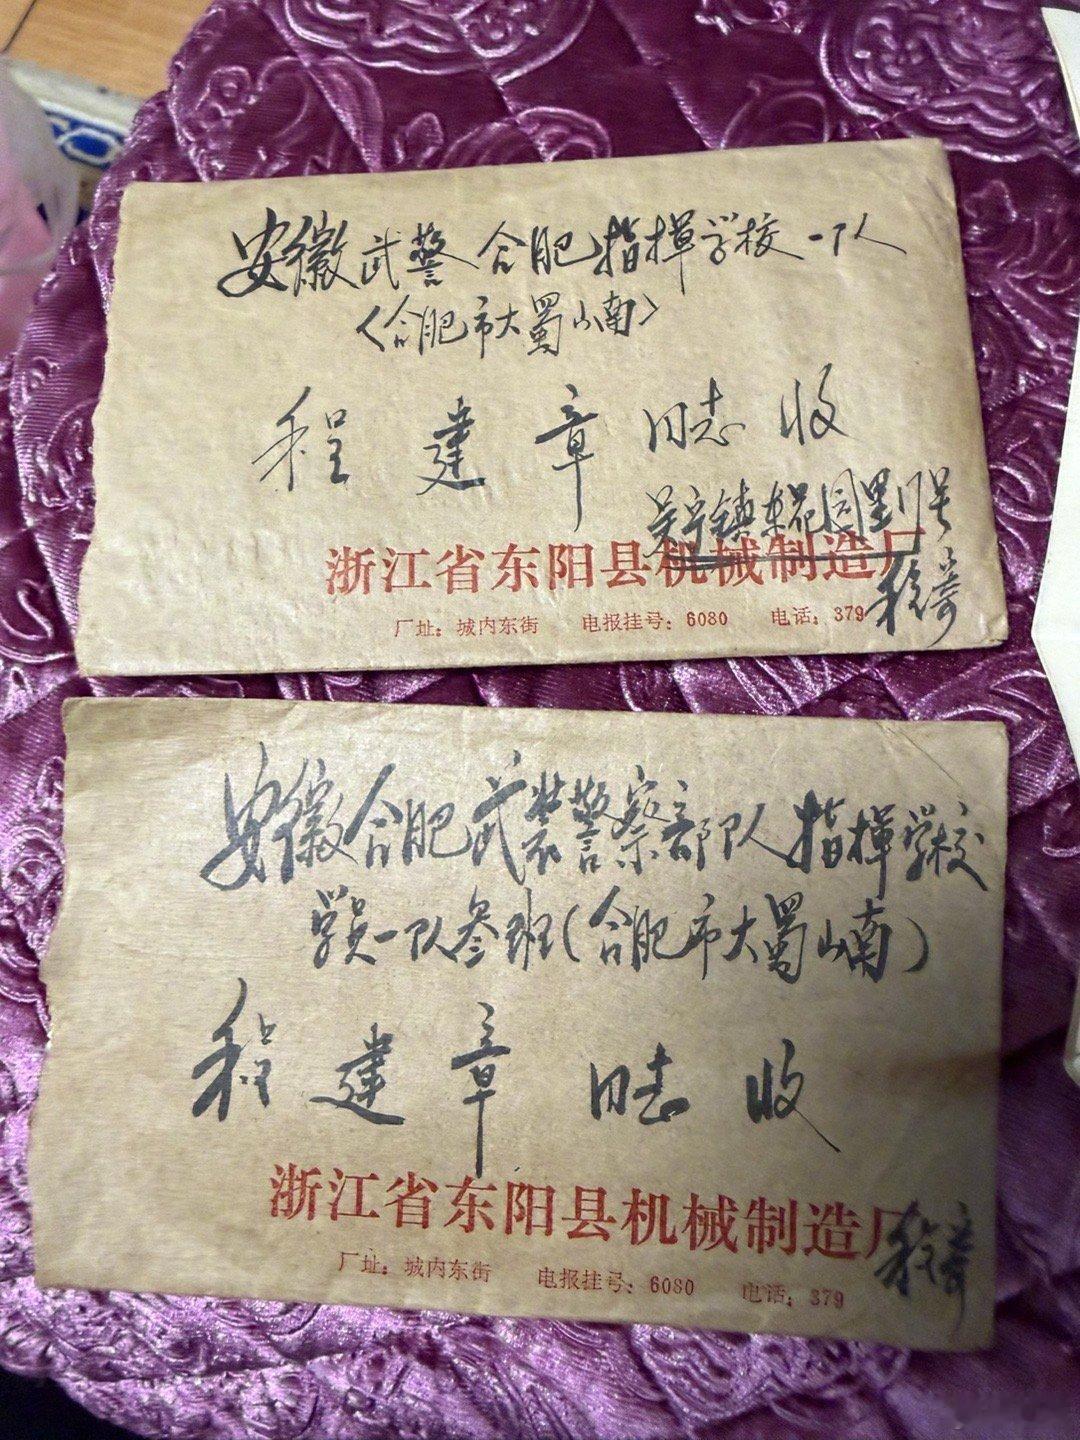 安徽武警合肥指揮学校一队
〈合肥市大蜀山南〉
程建章同志收
吴宁镇东花园里17号
浙江省东阳县机械制造厂
程
厂址：城内东街 电报挂号：6080 电话：379
安徽合肥武装警察部队指揮学校
学员一队叁班（合肥市大蜀山南）
程建章同志收
浙江省东阳县机械制造厂
程
厂址：城内东街 电报挂号：6080 电话：379